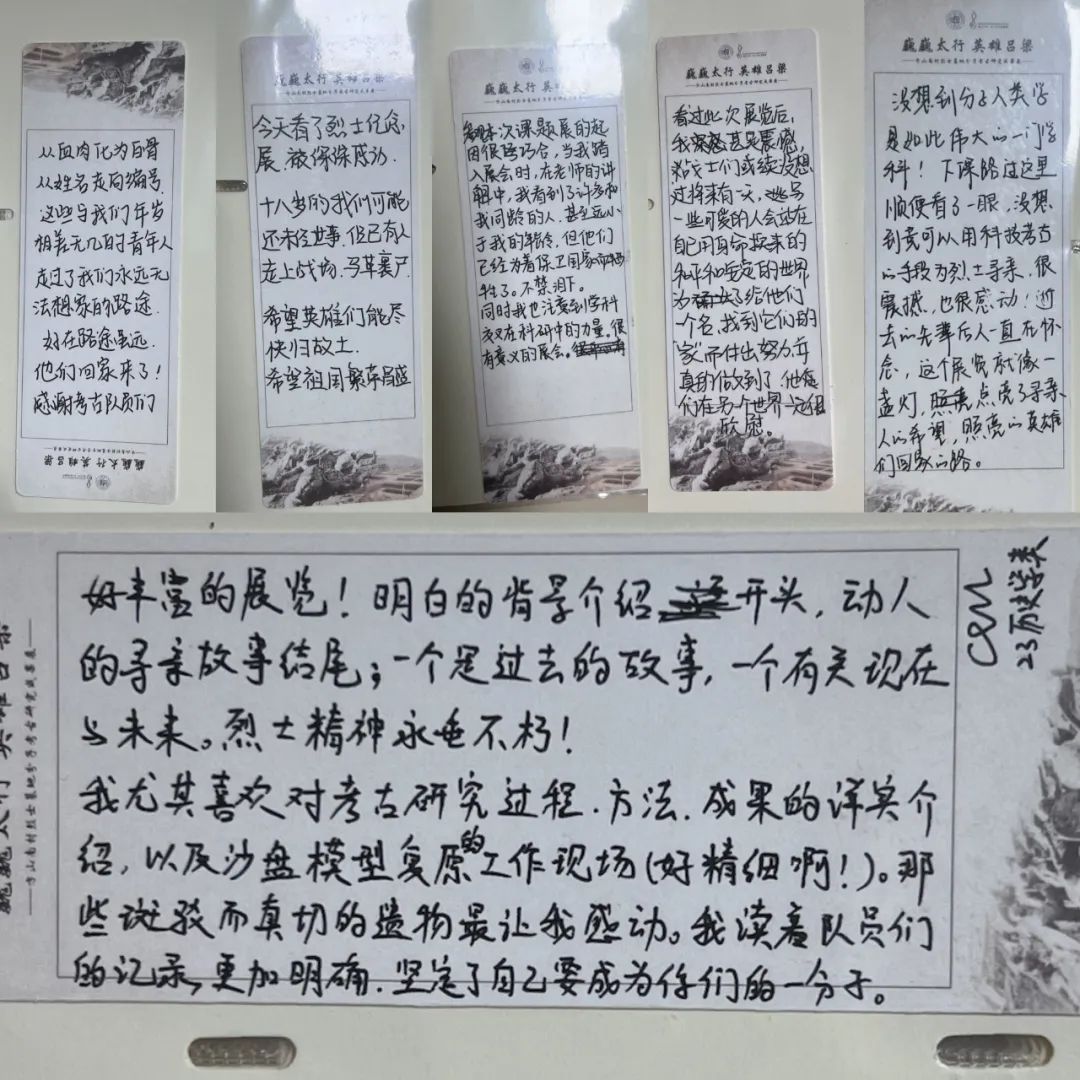 从血肉化为白骨
从姓名走向编号
这些与我们年岁
相差无几的青年人
走过了我们永远无
法想象的路途.
好在路途虽远.
他们回家来了!
感谢考古队员们
巍巍太行 英雄吕梁
巍巍太行 英雄吕梁
今天看了烈士纪念
展.被深深感动.
十八岁的我们可能
还未经世事.但已有人
走上战场.马革裹尸.
希望英雄们能尽
快归故土.
希望祖国繁荣昌盛
巍巍太行 英雄吕梁
本次课题展的起
因很巧合,当我踏
入展会时,在老师的讲
解中,我看到了许多和
我同龄的人.甚至远小
于我的年龄,但他们
已经为着保卫国家而牺
牲了。不禁泪下。
同时我也注意到学科
交叉在科研中的力量。很
有意义的展会。
巍巍太行 英雄吕梁
看过此次展览后,
我深感甚是震撼,
战士们或续没想
过将来有一天,
一些可爱的人会站在
自己用身命换来的
和平和安定的世界
为了给他们
一个名,找到它们的
“家”而付出努力并
真的做到了.他
们在另个世界一定很
欣慰。
巍巍太行 英雄吕梁
没想到分子人类学
是如此伟大的一门学
科!下课路过这里
顺便看了一眼,没想
到竟可以用科技考古
的手段为烈士寻亲,很
震撼,也很感动!逝
去的先辈后人一直在怀
念,这个展览就像一
盏灯,点亮了寻亲
人的希望,照亮的英雄
们回家的路。
好丰富的展览!明白的背景介绍开头,动人
的寻亲故事结尾;一个是过去的故事,一个有关现在
与未来。烈士精神永垂不朽!
我尤其喜欢对考古研究过程.方法.成果的详实介
绍,以及沙盘模型复原的工作现场(好精细啊!)。那
些斑驳而真切的遗物最让我感动。我读着队员们
的记录,更加明确.坚定了自己要成为你们的一分子。
23历史学类